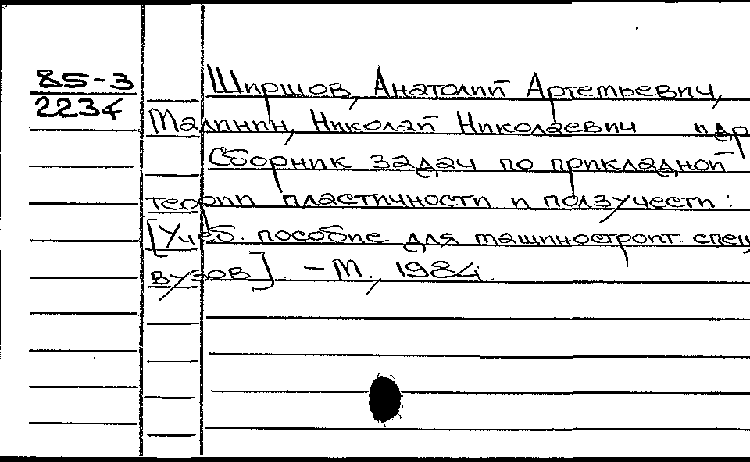 85-3
2234
Ширшов, Анатолий Артемьевич,
Малинин, Николай Николаевич и др
Сборник задач по прикладной
теории пластичности и ползучести:
[Учеб. пособие для машиностроит. спец
вузов] - М, 1984.